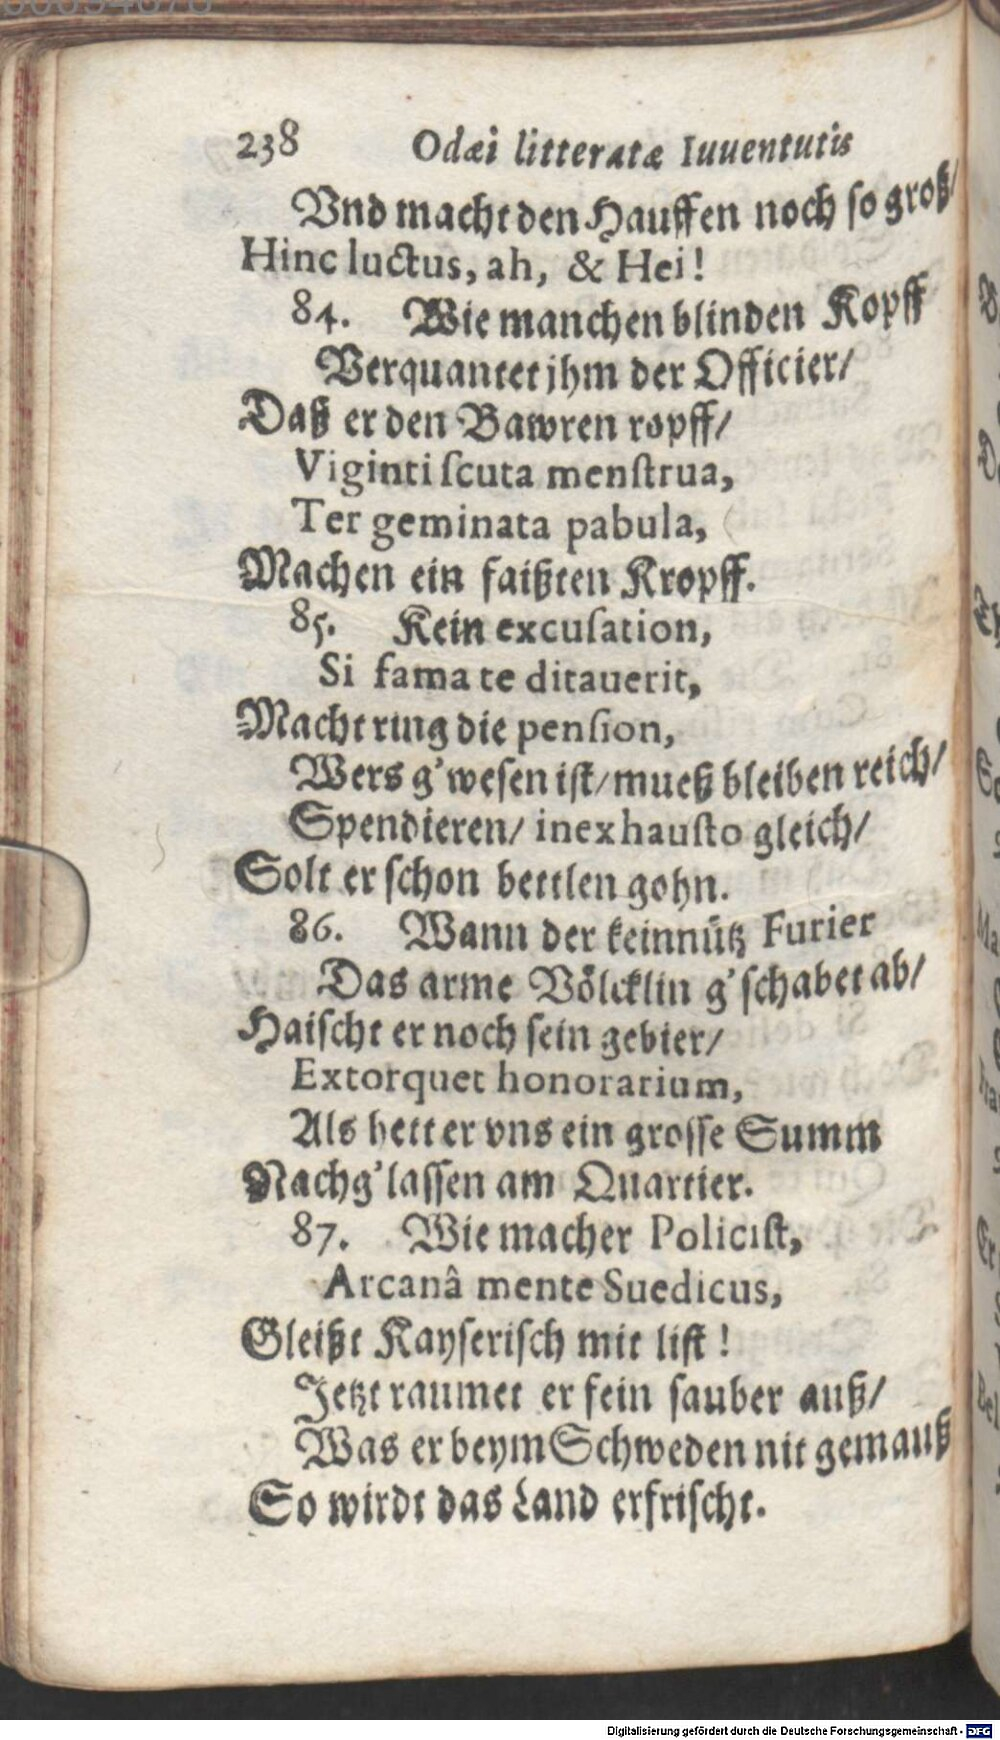 238 Odæi litteratæ Iuuentutis
Vnd macht den Hauffen noch so groß/
Hinc luctus, ah, & Hei!
84. Wie manchen blinden Kopff
Verquantet jhm der Officier/
Daß er den Bawren ropff/
Viginti ſcuta menſtrua,
Ter geminata pabula,
Machen ein faißten Kropff.
85. Kein excuſation,
Si fama te ditauerit,
Macht ring die penſion,
Wers g'wesen ist/ mueß bleiben reich/
Spendieren/ inexhauſto gleich/
Solt er schon bettlen gohn.
86. Wann der keinnütz Furier
Das arme Völcklin g'schabet ab/
Haischt er noch sein gebier/
Extorquet honorarium,
Als hett er vns ein grosse Summ
Nachg'lassen am Quartier.
87. Wie macher Policiſt,
Arcanâ mente Suedicus,
Gleißt Kayserisch mit list!
Jetzt raumet er fein sauber auß/
Was er beym Schweden nit gemauß
So wirdt das Land erfrischt.
Digitalisierung gefördert durch die Deutsche Forschungsgemeinschaft - DFG